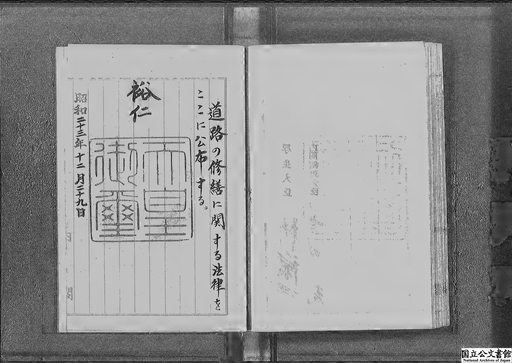 道路の修繕に関する法律を
ここに公布する。
裕仁
天皇
御璽
昭和二十三年十二月二十九日
厚生大臣
国立公文書館
National Archives of Japan